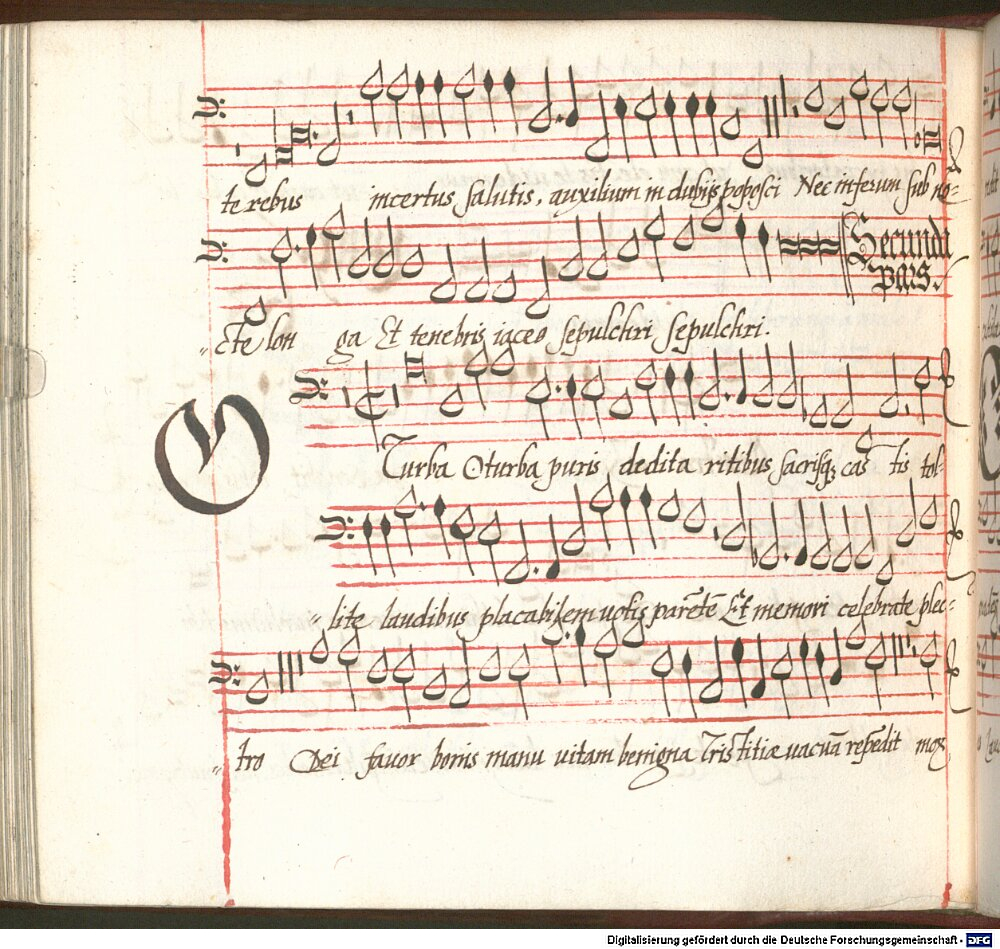 te rebus incertus salutis, auxilium in dubijs poposci Nec inferum sub no-
cte lon ga Et tenebris iaceo sepulchri sepulchri.
Secunda pars.
O Turba O turba puris dedita ritibus sacrisq; cas tis tol-
lite laudibus placabilem uotis parētē Et memori celebrate plec-
tro Dei fauor bonis manu uitam benigna Tristitiæ uacuā
Digitalisierung gefördert durch die Deutsche Forschungsgemeinschaft - DFG